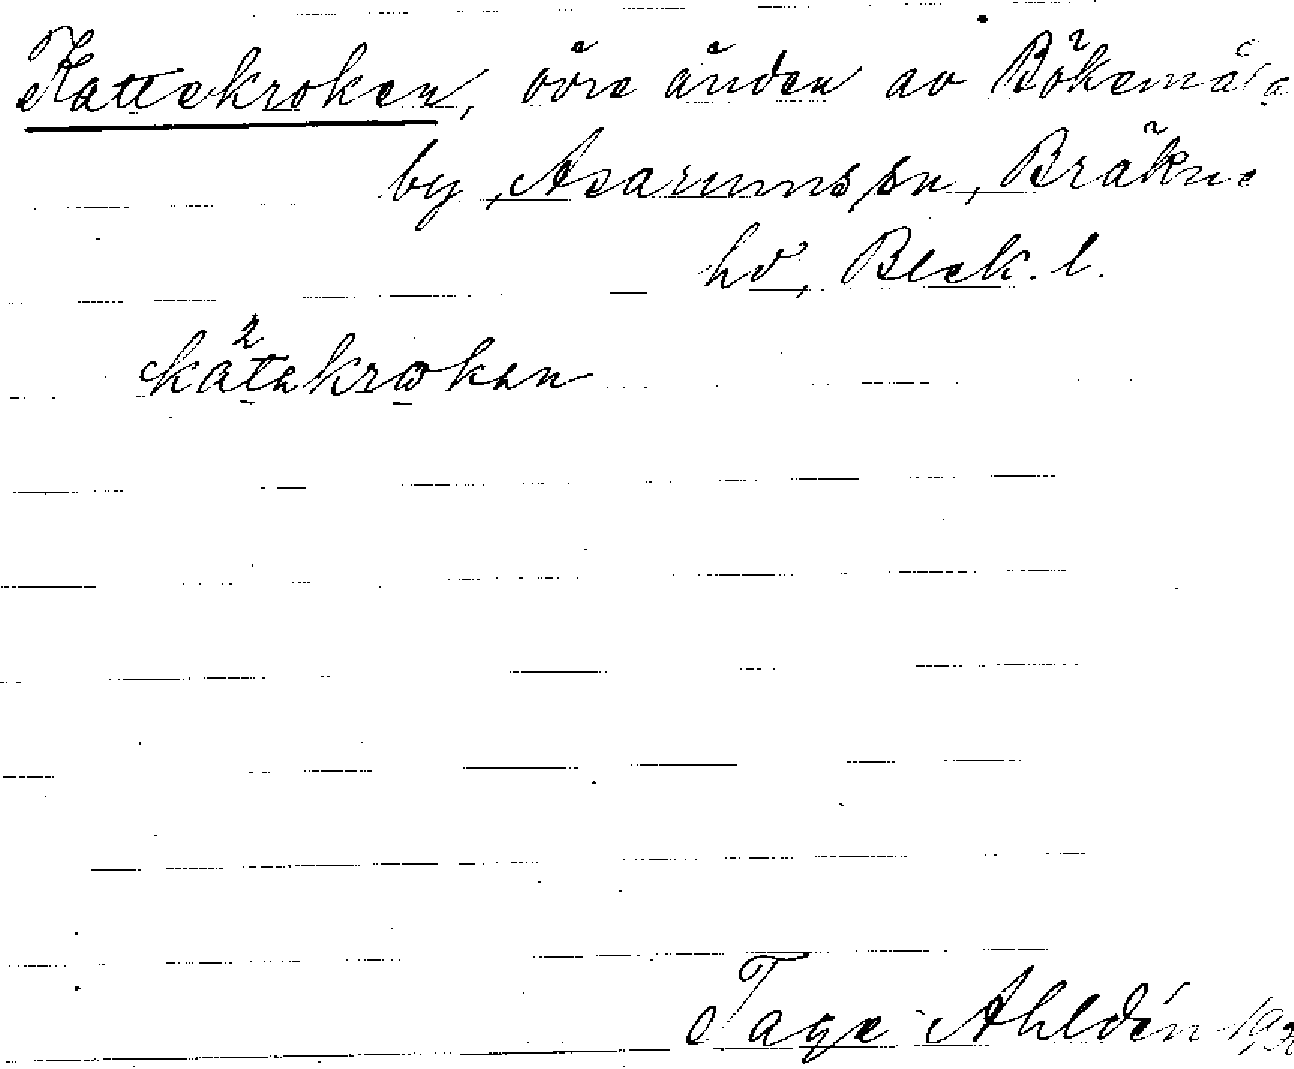 Kattekroken, övre änden av Bökemåla
by, Asarums sn, Bräkne
hd, Blek. l.
kat²ekroken
Tage Ahldén 192